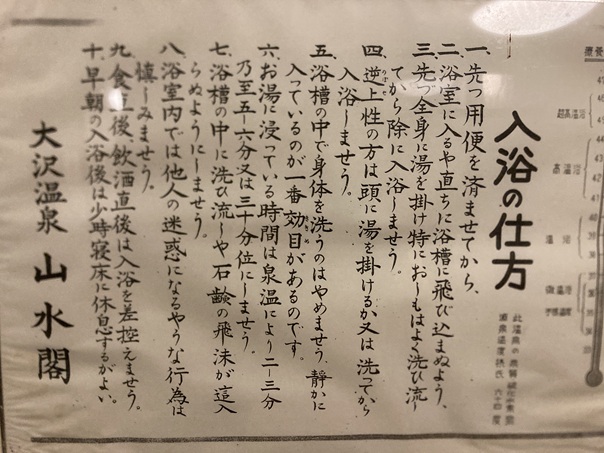 入浴の仕方
一、先づ用便を済ませてから、
二、浴室に入るや直ちに浴槽に飛び込まぬよう、
三、先づ全身に湯を掛け特におしもはよく洗ひ流し
てから除に入浴しませう。
四、逆上性の方は頭に湯を掛けるか又は洗ってから
入浴しませう。
五、浴槽の中で身体を洗うのはやめませう、静かに
入っているのが一番効目があるのです。
六、お湯に浸っている時間は泉温により二ー三分
乃至五ー六分又は三十分位にしませう。
七、浴槽の中に洗ひ流しや石鹸の飛沫が這入
らぬようにしませう。
八、浴室内では他人の迷惑になるやうな行為は
慎しみませう。
九、食直後、飲酒直後は入浴を差控えませう。
十、早朝の入浴後は少時寝床に休息するがよい。
大沢温泉 山水閣
療養
超高温浴
高温浴
温浴
微温浴
不感温度
此温泉の
源泉温度摂氏 六十四度